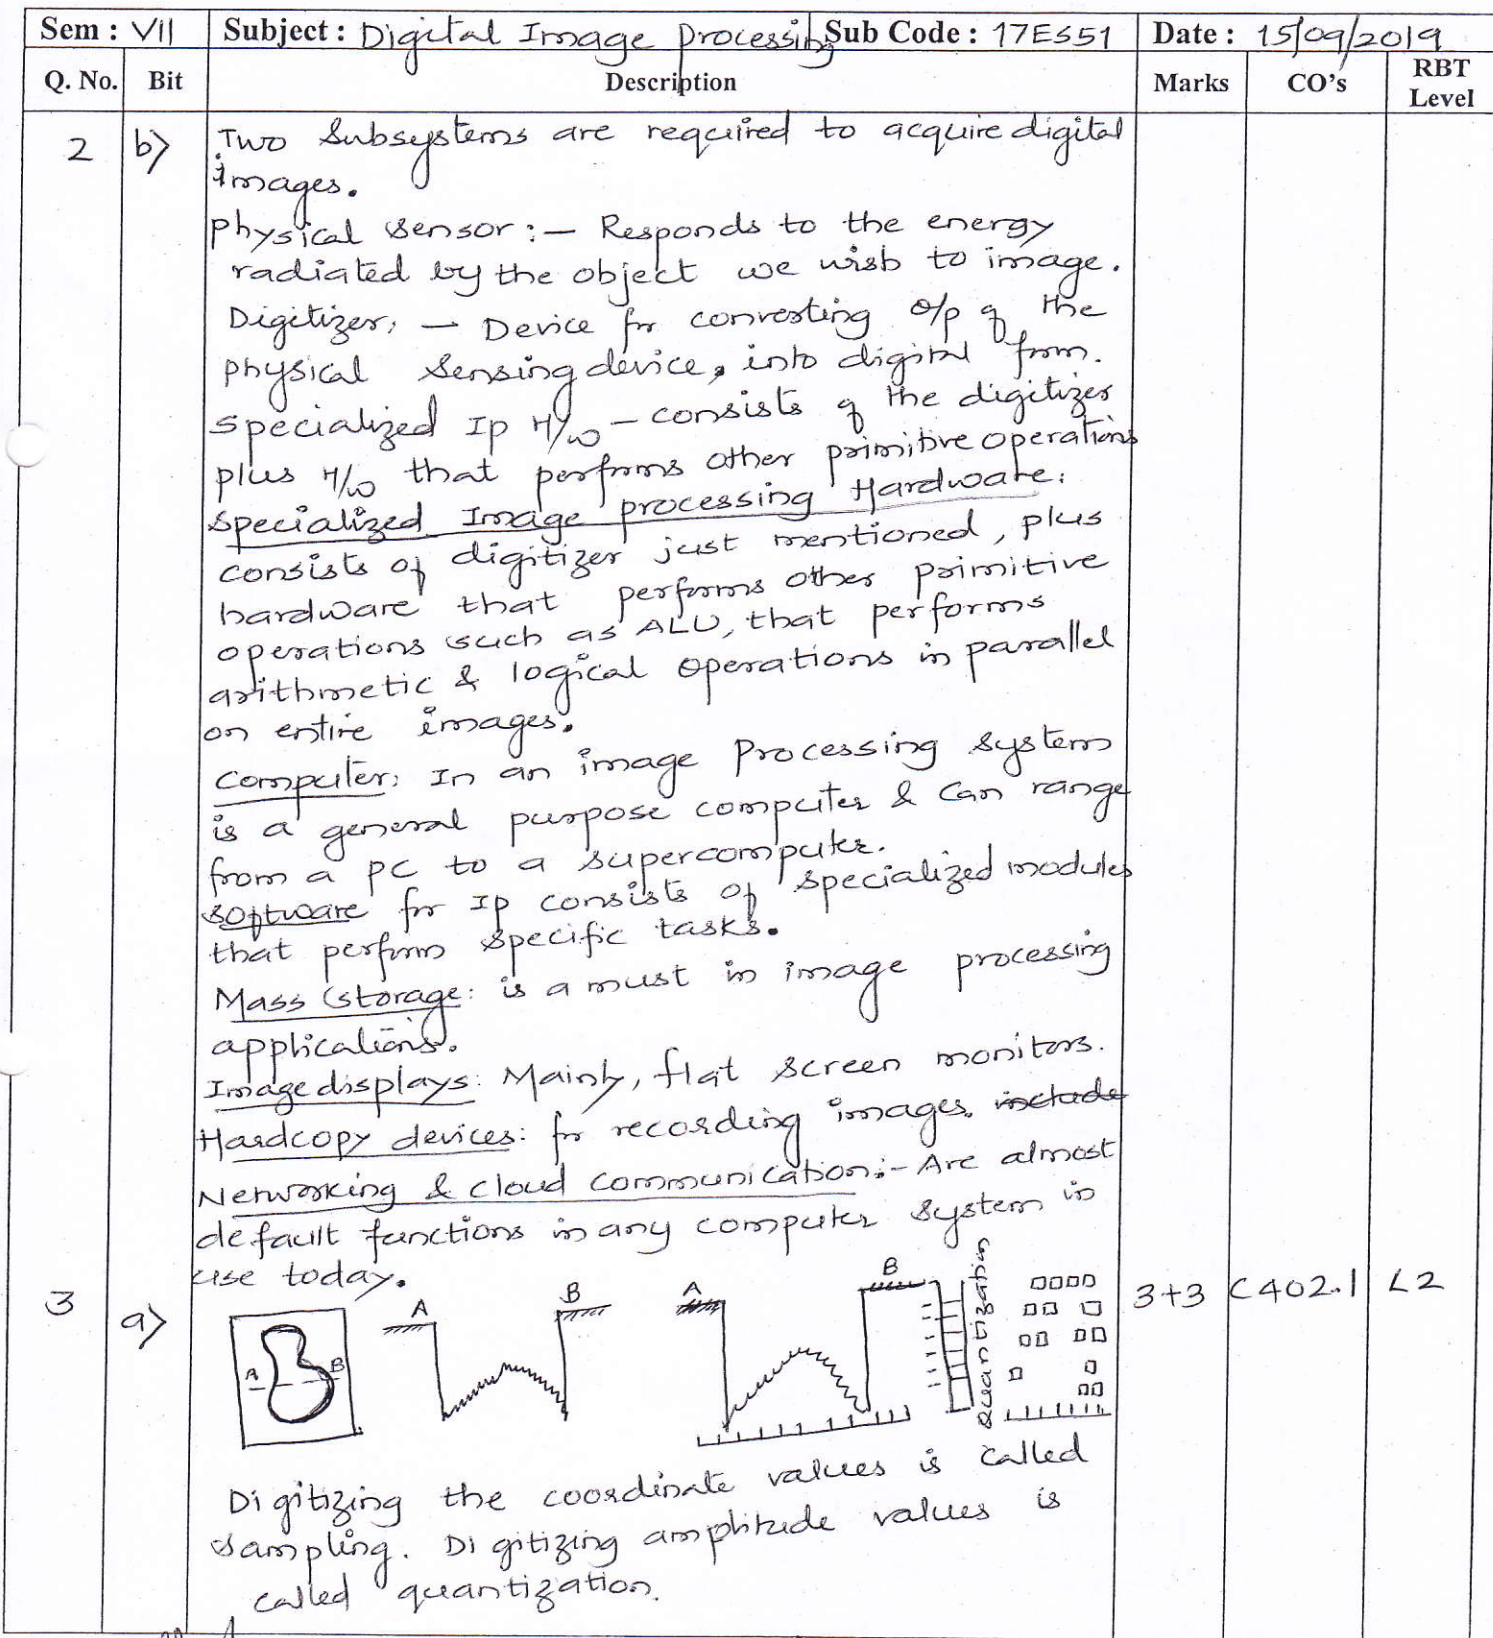 Sem : VII Subject : Digital Image Processing Sub Code : 17ES51 Date : 15/09/2019
Q. No. Bit Description Marks CO's RBT Level
2 b) Two Subsystems are required to acquire digital
images.
Physical Sensor :— Responds to the energy
radiated by the object we wish to image.
Digitizer: — Device for converting o/p of the
physical Sensing device, into digital form.
Specialized Ip H/w – consists of the digitizer
plus H/w that performs other primitive operations
Specialized Image processing Hardware:
consists of digitizer just mentioned, plus
hardware that performs other primitive
operations such as ALU, that performs
arithmetic & logical operations in parallel
on entire images.
Computer: In an image Processing System
is a general purpose computer & Can range
from a PC to a Supercomputer.
Software for Ip consists of specialized modules
that perform specific tasks.
Mass Storage: is a must in image processing
applications.
Image displays: Mainly, flat screen monitors.
Hardcopy devices: for recording images. include
Networking & cloud communication:- Are almost
default functions in any computer System in
use today.
3 a) 3+3 C402.1 L2
A B
A B
A B
Quantization
Digitizing the coordinate values is called
Sampling. Digitizing amplitude values is
called quantization.